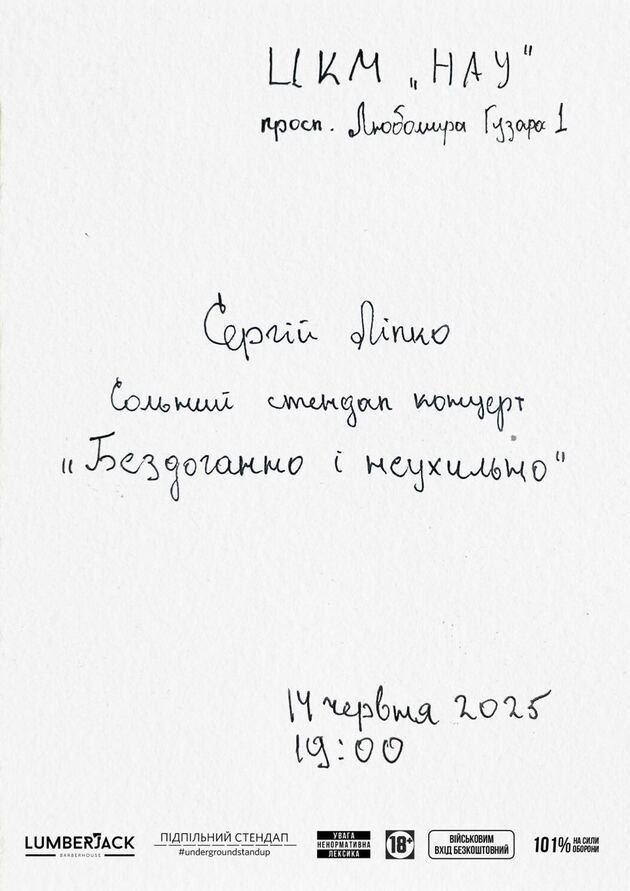 ЦКМ „НАУ"
просп. Любомира Гузара 1
Сергій Ліпко
Сольний стендап концерт
"Бездоганно і неухильно"
14 червня 2025
19:00
LUMBERJACK
BARBERHOUSE
ПІДПІЛЬНИЙ СТЕНДАП
#undergroundstandup
УВАГА
НЕНОРМАТИВНА
ЛЕКСИКА
18+
ВІЙСЬКОВИМ
ВХІД БЕЗКОШТОВНИЙ
101% НА СИЛИ
ОБОРОНИ